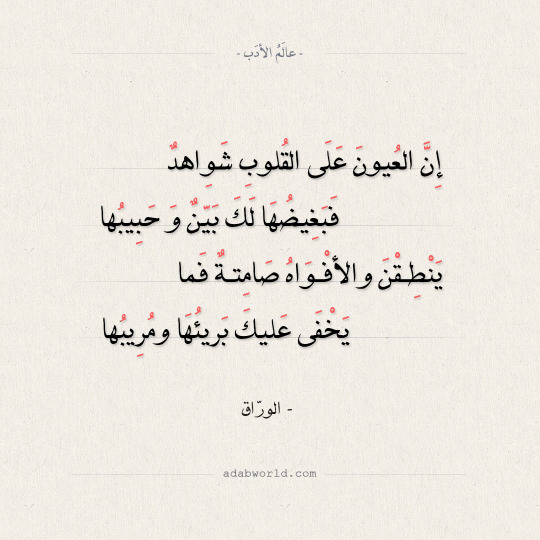 - عالَمُ الأدَب -
إِنَّ العُيونَ عَلَى القُلوبِ شَوِاهدٌ
فَبَغِيضُهَا لَكَ بَيّنٌ وَ حَبِيبُها
يَنْطِقْنَ والأفْـوَاهُ صَامِتـةٌ فَما
يَخْفَى عَليكَ بَريئُهَا ومُرِيبُها
- الورّاق
adabworld.com